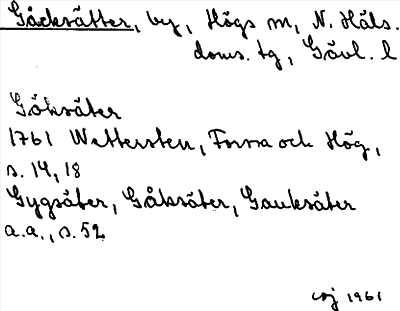 Gåcksätter, by, Högs sn, N. Häls.
doms. tg, Gävl. l
Göksäter
1761 Wettersten, Forsa och Hög,
s. 14, 18
Gygsäter, Gåksäter, Gauksäter
a.a., s. 52
1961